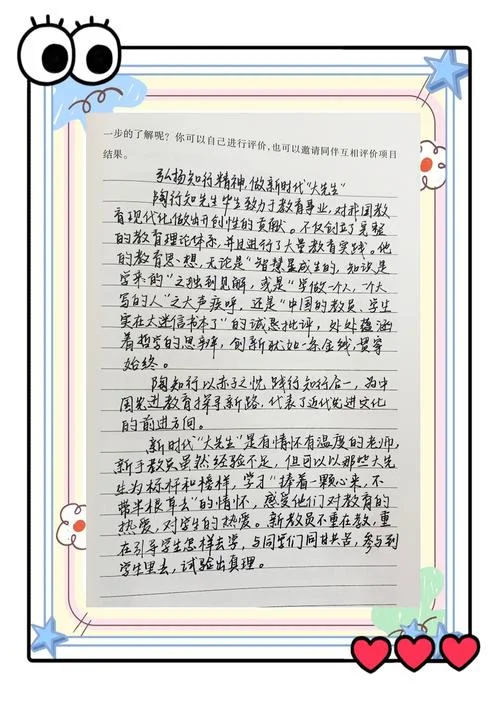 一步的了解呢？你可以自己进行评价，也可以邀请同伴互相评价项目
结果。
弘扬知行精神，做新时代“大先生”
陶行知先生毕生致力于教育事业，对非国教
育现代化做出开创性的贡献。不仅创立了完整
的教育理论体系，并且进行了大量教育实践。他
的教育思想，无论是“智慧是成生的，知识是
学来的”之独到见解，或是“学做一个人，一个大
写的人”之大声疾呼，还是“中国的教员、学生
实在太迷信书本了”的诚恳批评，处处蕴涵
着哲学的思辨，创新就如一条金线，贯穿
始终。
陶知行以赤子之忱，践行知行合一，为中
国先进教育探寻新路，代表了近代先进文化
的前进方向。
新时代“大先生”是有情怀有温度的老师，
新手教员虽然经验不足，但可以以那些大先
生为标杆和榜样，学习“捧着一颗心来，不
带半根草去”的情怀，感受他们对教育的
热爱，对学生的热爱。新教员不重在教，重
在引导学生怎样去学，与同学们同甘共苦，参与到
学生里去，试验出真理。